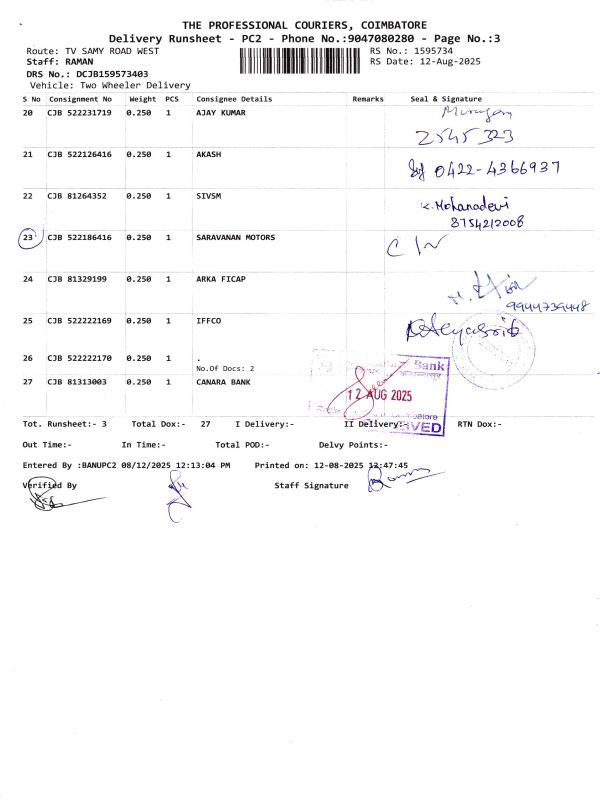 THE PROFESSIONAL COURIERS, COIMBATORE
Delivery Runsheet - PC2 - Phone No.:9047080280 - Page No.:3
Route: TV SAMY ROAD WEST
RS No.: 1595734
Staff: RAMAN
RS Date: 12-Aug-2025
DRS No.: DCJB159573403
Vehicle: Two Wheeler Delivery
S No Consignment No Weight PCS Consignee Details Remarks Seal & Signature
20 CJB 522231719 0.250 1 AJAY KUMAR Murugan
2545 323
21 CJB 522126416 0.250 1 AKASH 0422-4366937
22 CJB 81264352 0.250 1 SIVSM K. Mohanadevi
8754212008
23 CJB 522186416 0.250 1 SARAVANAN MOTORS C/N
24 CJB 81329199 0.250 1 ARKA FICAP
9944739448
25 CJB 522222169 0.250 1 IFFCO
26 CJB 522222170 0.250 1 .
No.Of Docs: 2
Bank
27 CJB 81313003 0.250 1 CANARA BANK
12 AUG 2025
Tot. Runsheet:- 3 Total Dox:- 27 I Delivery:- II Delivery:- RTN Dox:-
Out Time:- In Time:- Total POD:- Delvy Points:-
Entered By :BANUPC2 08/12/2025 12:13:04 PM Printed on: 12-08-2025 12:47:45
Verified By Staff Signature